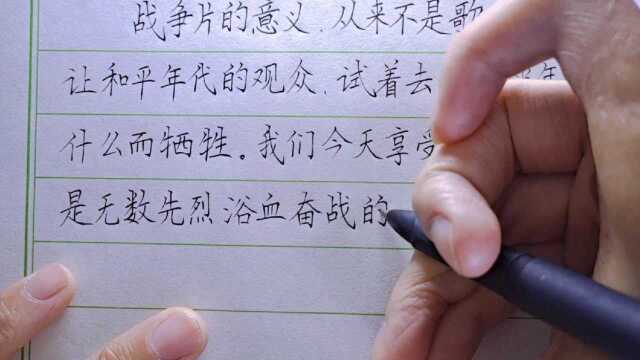 战争片的意义,从来不是歌
让和平年代的观众,试着去
什么而牺牲。我们今天享受
是无数先烈浴血奋战的